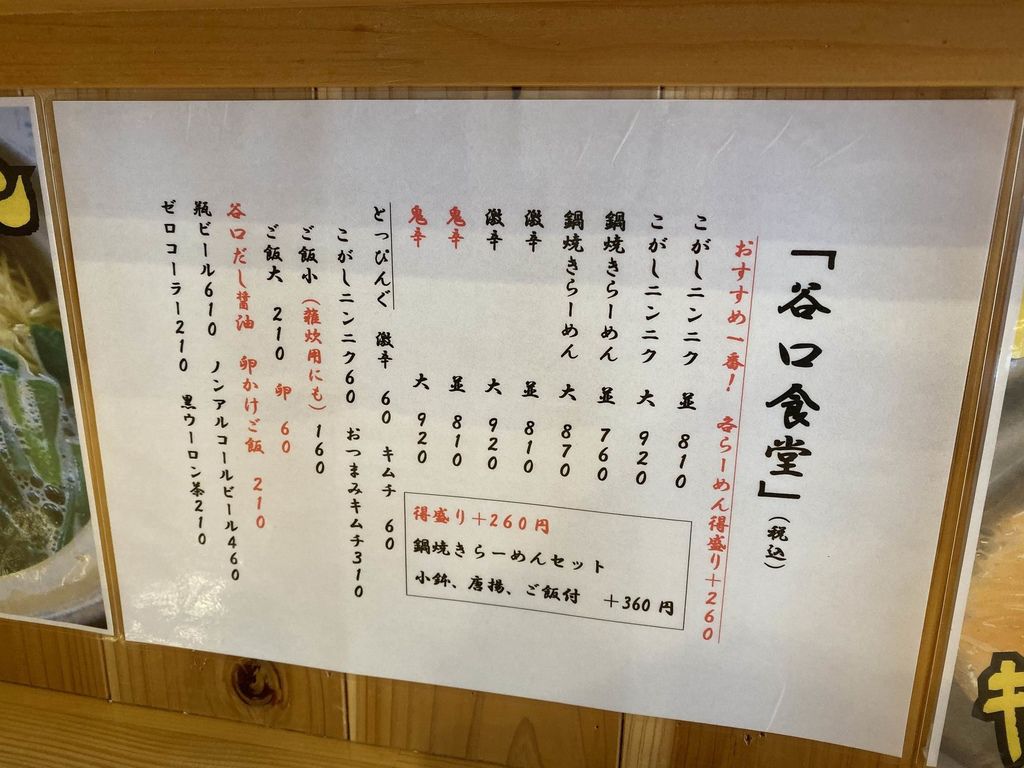 「谷口食堂」(税込)
おすすめ一番! 各らーめん得盛り+260
こがしニンニク 並 810
こがしニンニク 大 920
鍋焼きらーめん 並 760
鍋焼きらーめん 大 870
激辛 並 810
激辛 大 920
鬼辛 並 810
鬼辛 大 920
得盛り+260円
鍋焼きらーめんセット
小鉢、唐揚、ご飯付 +360円
とっぴんぐ 激辛 60 キムチ 60
こがしニンニク60 おつまみキムチ310
ご飯小(雑炊用にも)160
ご飯大 210 卵 60
谷口だし醤油 卵かけご飯 210
瓶ビール610 ノンアルコールビール460
ゼロコーラー210 黒ウーロン茶210